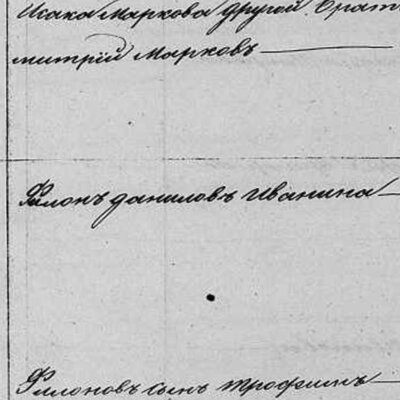 Исака Маркова другой брат
митрій Марковъ
Филонъ даниловъ Иванина
Филоновъ сынъ трофимъ